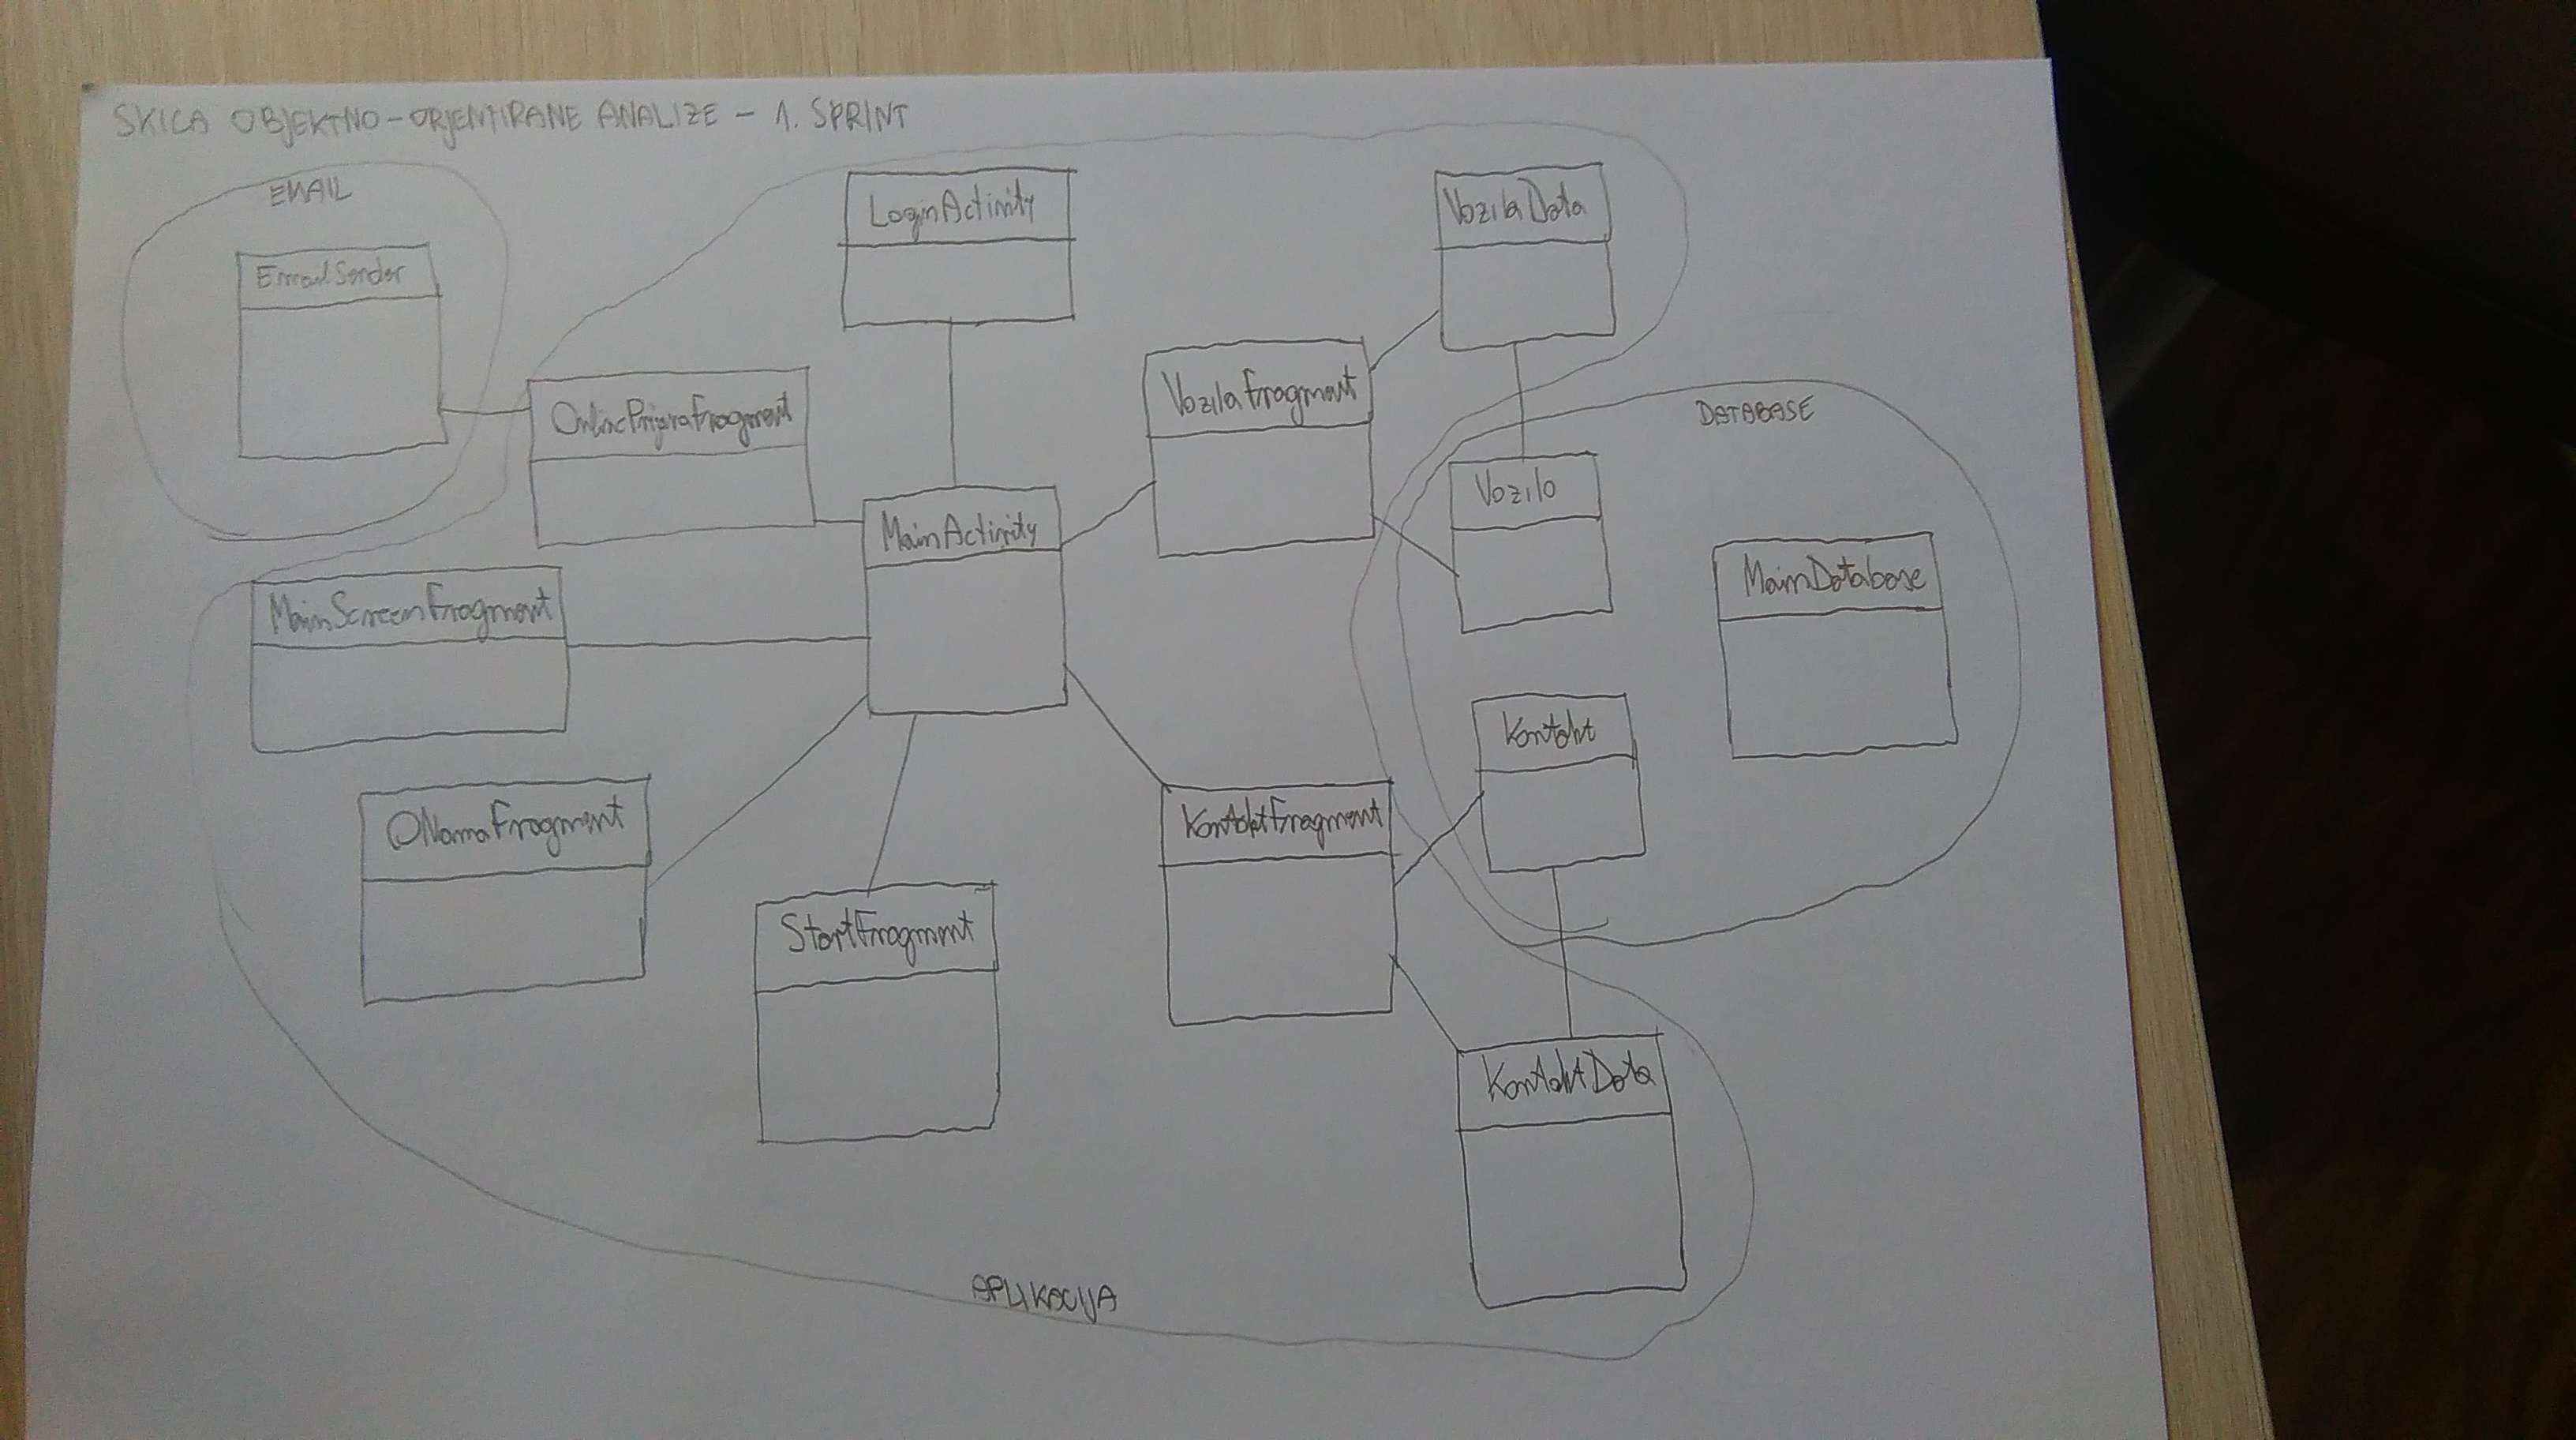 SKICA OBJEKTNO-ORJENTIRANE ANALIZE - 1. SPRINT
EMAIL
EmailSender
LoginActivity
VozilaData
OnlinePrijavaFragment
VozilaFragment
DATABASE
Vozilo
MainActivity
MainDatabase
MainScreenFragment
Kontakt
ONamaFragment
KontaktFragment
StartFragment
KontaktData
APLIKACIJA